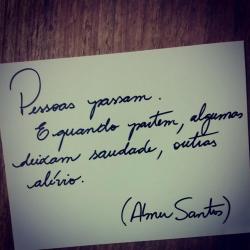 Pessoas passam.
E quando partem, algumas
deixam saudade, outras
alívio.
(Abner Santos)